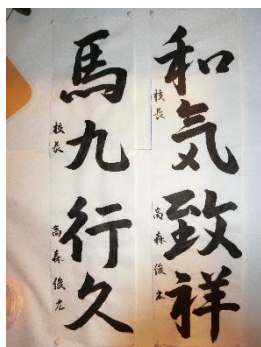 和気致祥
校長 高森俊
馬九行久
校長 高森俊